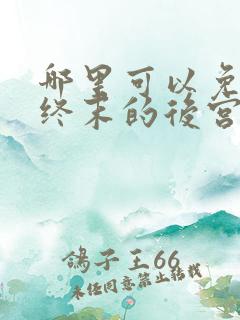 哪里可以免
终末的後宫
鴿子王66
未经同意禁止转载